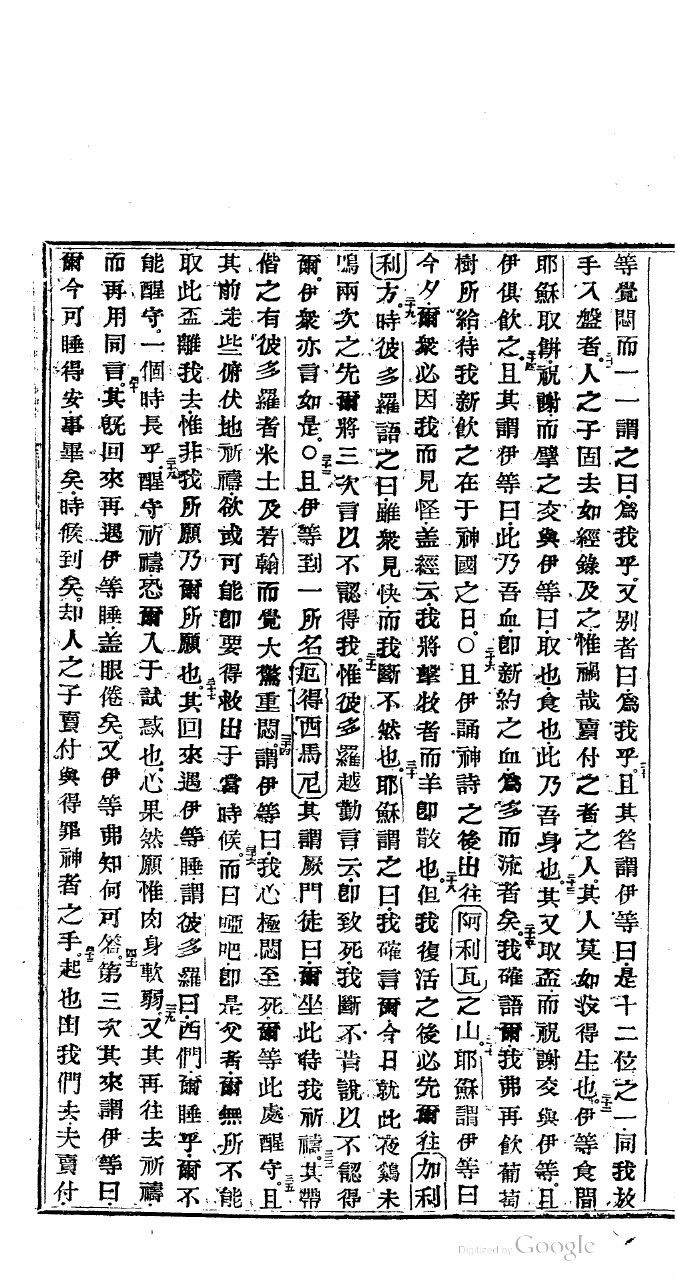 等覺悶而一一謂之曰為我乎又別者曰為我乎二十且其答謂伊等曰是十二位之一同我放
手入盤者二十一人之子固去如經錄及之惟禍哉賣付之者之人其人莫如沒得生也二十二伊等食間
耶穌取餅祝謝而擘之交與伊等曰取也食也此乃吾身也二十三其又取盃而祝謝交與伊等且
伊俱飲之二十四且其謂伊等曰此乃吾血即新約之血為多而流者矣二十五我確語爾我弗再飲葡萄
樹所給待我新飲之在于神國之日○二十六且伊誦神詩之後出往阿利瓦之山二十七耶穌謂伊等曰
今夕爾衆必因我而見怪盖經云我將擊牧者而羊即散也二十八但我復活之後必先爾往加利
利方二十九時彼多羅語之曰雖衆見快而我斷不然也三十耶穌謂之曰我確言爾今日就此夜鷄未
鳴兩次之先爾將三次言以不認得我三十一惟彼多羅越勤言云即致死我斷不肯說以不認得
爾伊衆亦言如是○三十二且伊等到一所名厄得西馬尼其謂厥門徒曰爾坐此待我祈禱三十三其帶
偕之有彼多羅者米士及若翰而覺大驚重悶三十四謂伊等曰我心極悶至死爾等此處醒守三十五且
其前走些俯伏地祈禱欲或可能即要得救出于當時候三十六而曰啞吧即是父者爾無所不能
取此盃離我去惟非我所願乃爾所願也三十七其回來遇伊等睡謂彼多羅曰西們爾睡乎爾不
能醒守一個時長乎醒守祈禱恐爾入于試惑也心果然願惟肉身軟弱三十九又其再往去祈禱
而再用同言四十其旣回來再遇伊等睡盖眼倦矣又伊等弗知何可答四十一第三次其來謂伊等曰
爾今可睡得安事畢矣時候到矣却人之子賣付與得罪神者之手四十二起也由我們去夫賣付
Digitized by Google